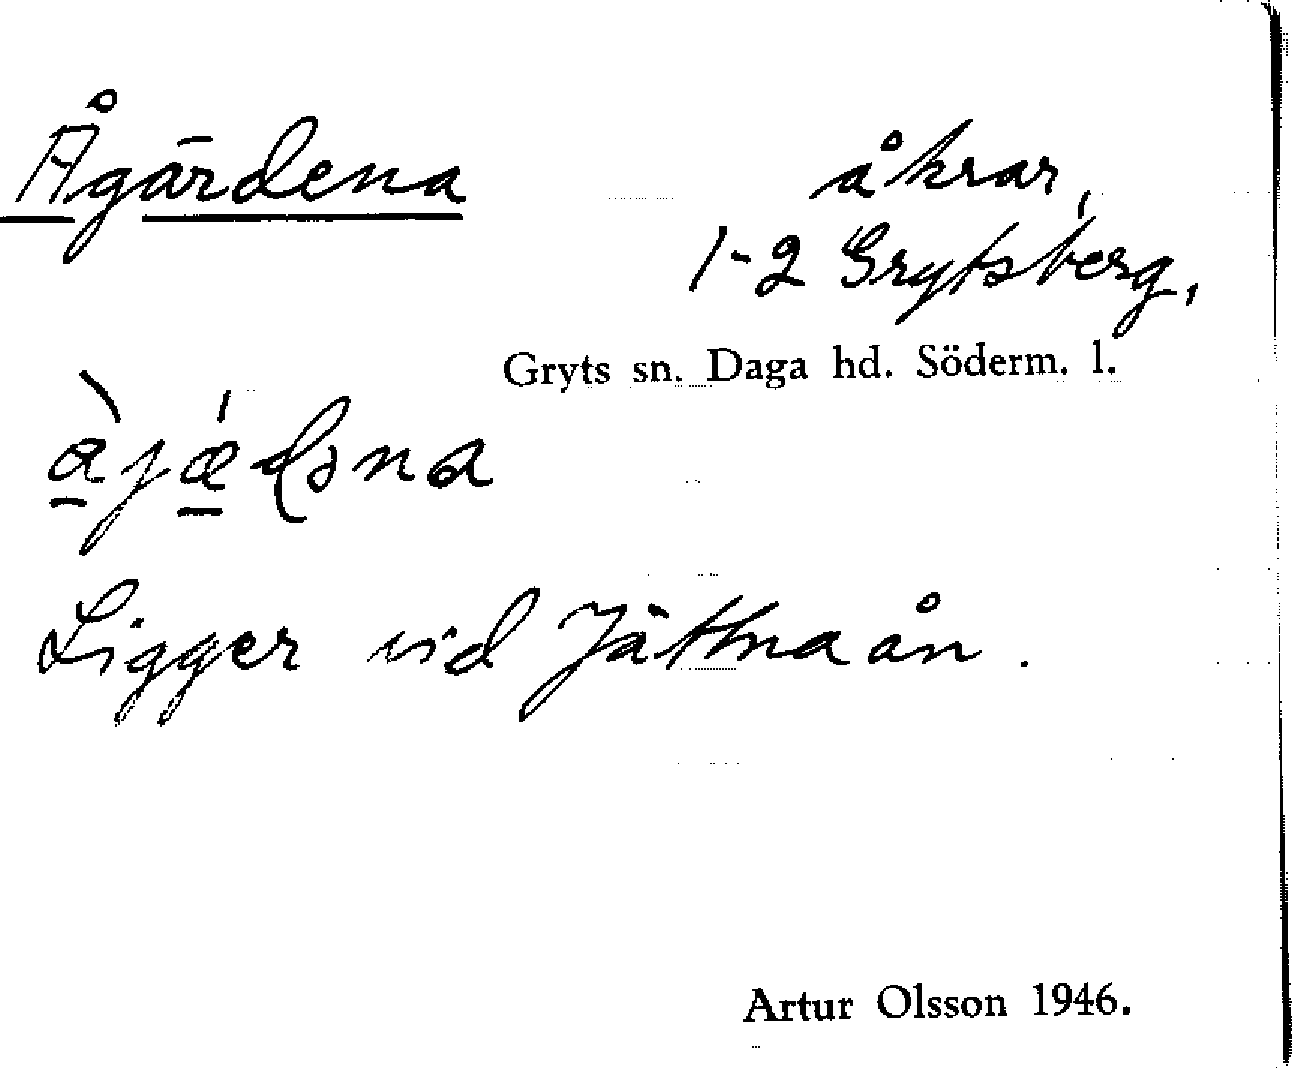 Ågärdena åkrar,
1-2 Grytsberg,
Gryts sn. Daga hd. Söderm. l.
Ligger vid Jättnaån.
Artur Olsson 1946.